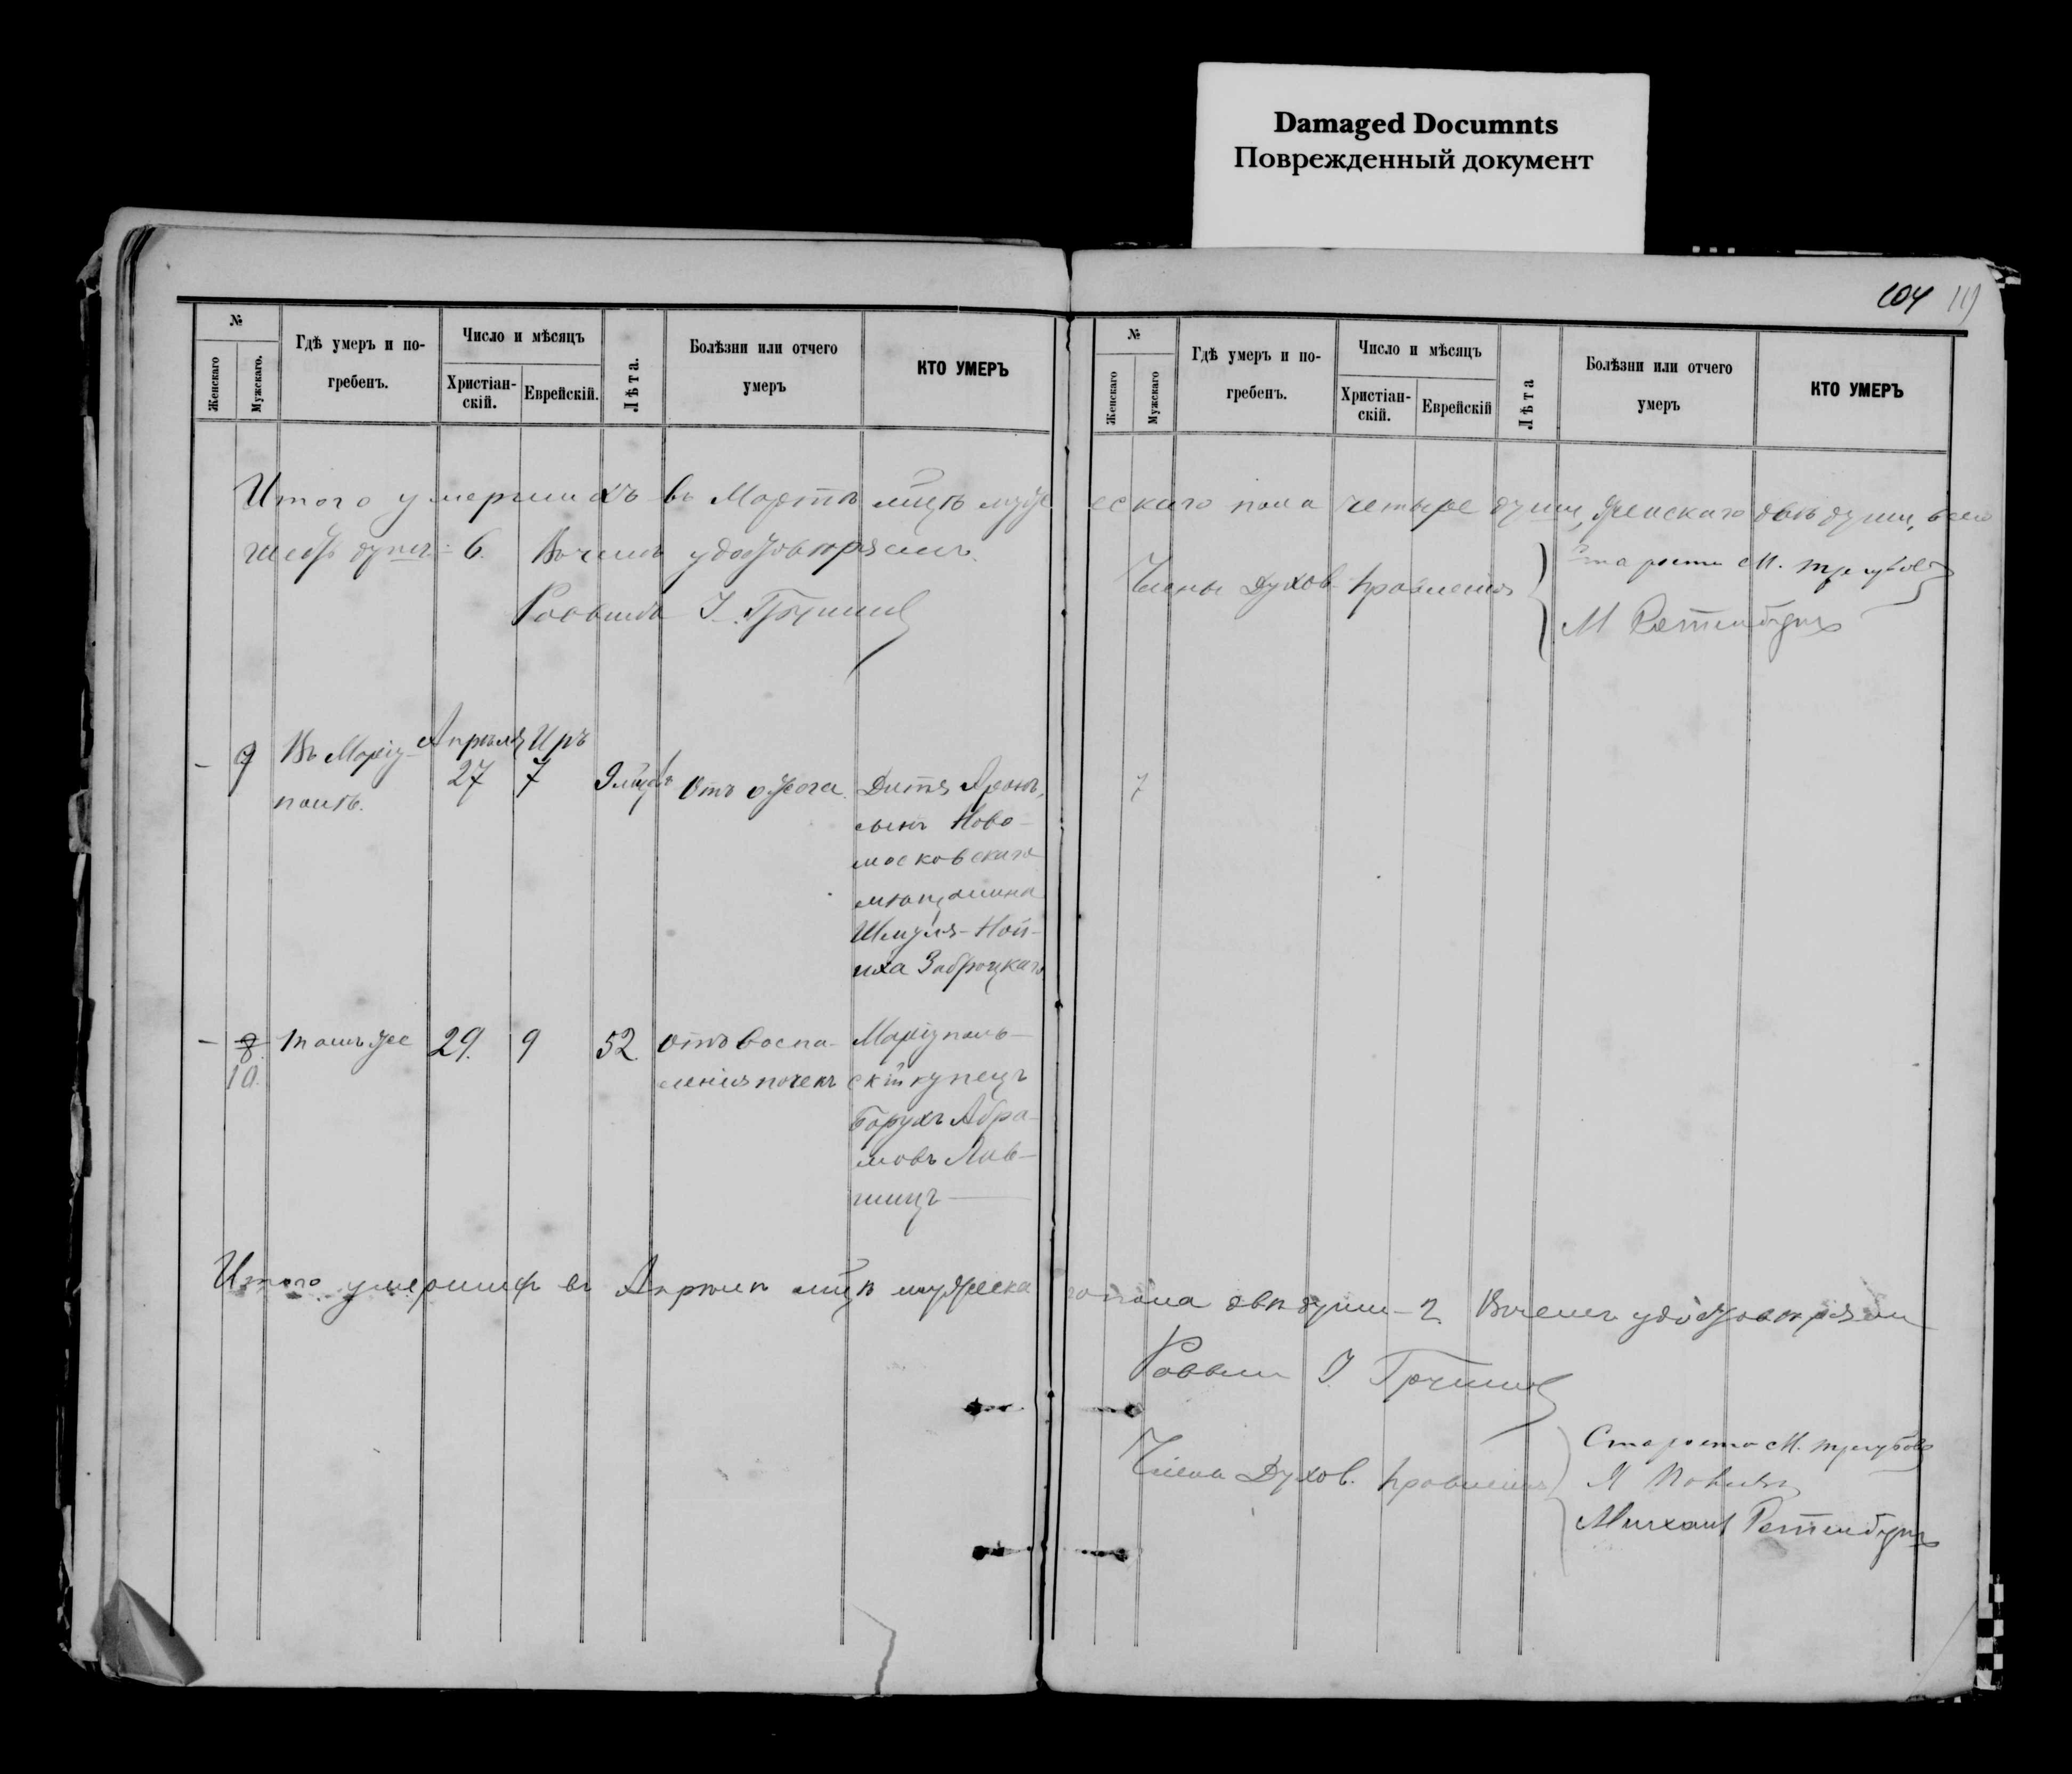 Damaged Documnts
Поврежденный документ
104
№
Женскаго
Мужскаго.
Гдѣ умеръ и по-
гребенъ.
Число и мѣсяцъ
Христіан-
скій.
Еврейскій.
Лѣта.
Болѣзни или отчего
умеръ
КТО УМЕРЪ
№
Женскаго
Мужскаго
Гдѣ умеръ и по-
гребенъ.
Число и мѣсяцъ
Христіан-
скій.
Еврейскій
Лѣта
Болѣзни или отчего
умеръ
КТО УМЕРЪ
Итого умершихъ въ Мартѣ мцѣ мужескаго пола четыре души, женскаго двѣ души, всего
шесть душъ - 6. Въ чемъ удостовѣряемъ.
Раввинъ
Члены Духов. Правленія
Староста М.
М
9 Въ Маріу-
полѣ.
Апрѣля 27
Ир
7
9
Отъ ожога.
Дитя Аронъ,
сынъ Ново-
московскаго
мѣщанина
Шмуля-Ной-
иха Заброцкаго
7
8
10.
тамъ же
29.
9
52
отъ воспа-
ленія почекъ
Маріуполь-
скій купецъ
Борухъ Абра-
мовъ
Итого умершихъ въ Апрѣлѣ мцѣ мужескаго пола двѣ души - 2 Въ чемъ удостовѣряемъ
Раввинъ
Члены Духов. Правленія
Староста М.
М
Михаил